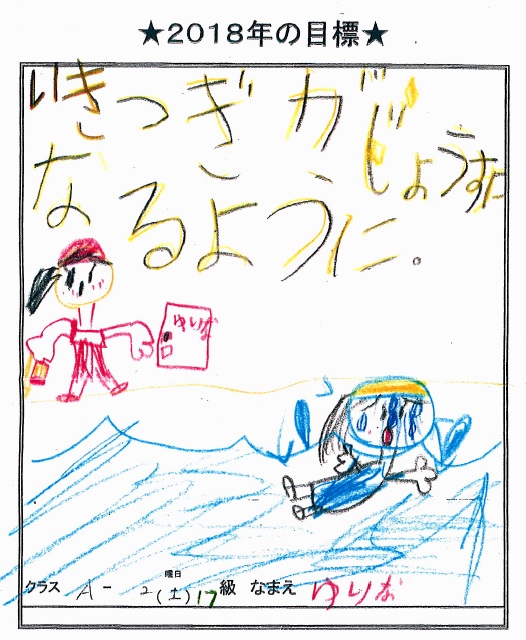 ★2018年の目標★
いきつぎが じょうずに
なるように。
ゆりな
曜日
クラス A-2(土)17級 なまえ ゆりな